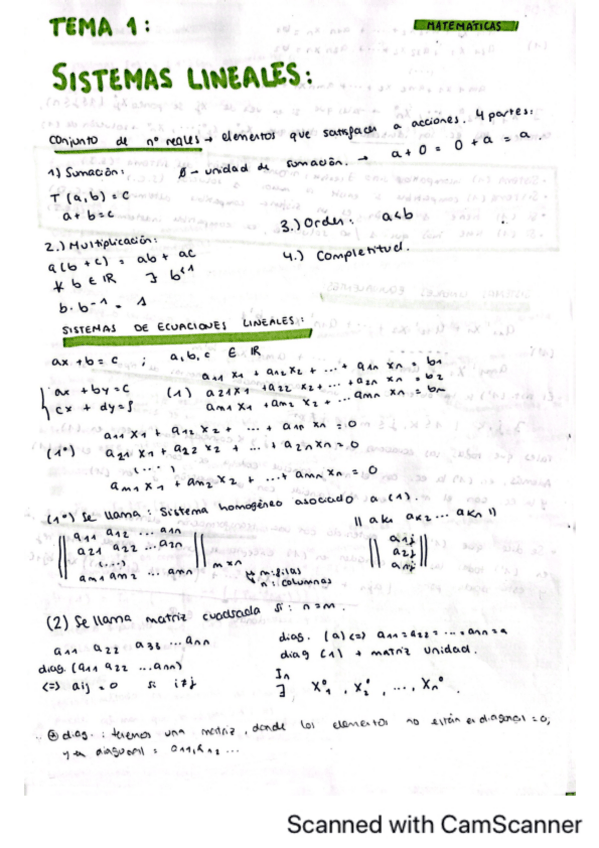 TEMA 1:
MATEMATICAS
SISTEMAS LINEALES:
conjunto de nº reales → elementos que satisfacen a acciones. 4 partes:
1) Sumación: 0 → unidad de sumación. → a + 0 = 0 + a = a.
T (a, b) = c
a + b = c
3.) Orden: a<b
2.) Multiplicación:
a(b + c) = ab + ac
4.) Completitud.
b ∈ IR ∃ b⁻¹
b · b⁻¹ = 1
SISTEMAS DE ECUACIONES LINEALES:
ax + b = c ; a, b, c ∈ IR
ax + by = c
cx + dy = f
(1) a11 x1 + a12 x2 + ... + a1n xn = b1
a21 x1 + a22 x2 + ... + a2n xn = b2
am1 x1 + am2 x2 + ... amn xn = bm
(1º) a11 x1 + a12 x2 + ... + a1n xn = 0
a21 x1 + a22 x2 + ... + a2n xn = 0
(...)
am1 x1 + am2 x2 + ... + amn xn = 0
(1º) Se llama: Sistema homogéneo asociado a (1).
|| a11 a12 ... a1n
a21 a22 ... a2n
(...)
am1 am2 ... amn || m×n
m: filas
n: columnas
|| ak1 ak2 ... akn ||
|| a1j
a2j
anj ||
(2) Se llama matriz cuadrada si: n = m.
a11 a22 a33 ... ann
diag. (a11 a22 ... ann)
(=) aij = 0 si i≠j
diag. (a) <=> a11 = a22 = ... = ann = a
diag (1) + matriz unidad.
In
∃ X1º, X2º, ..., Xnº.
diag.: tenemos una matriz, donde los elementos no están en diagonal = 0,
y en diagonal = a11, a12 ...
Scanned with CamScanner